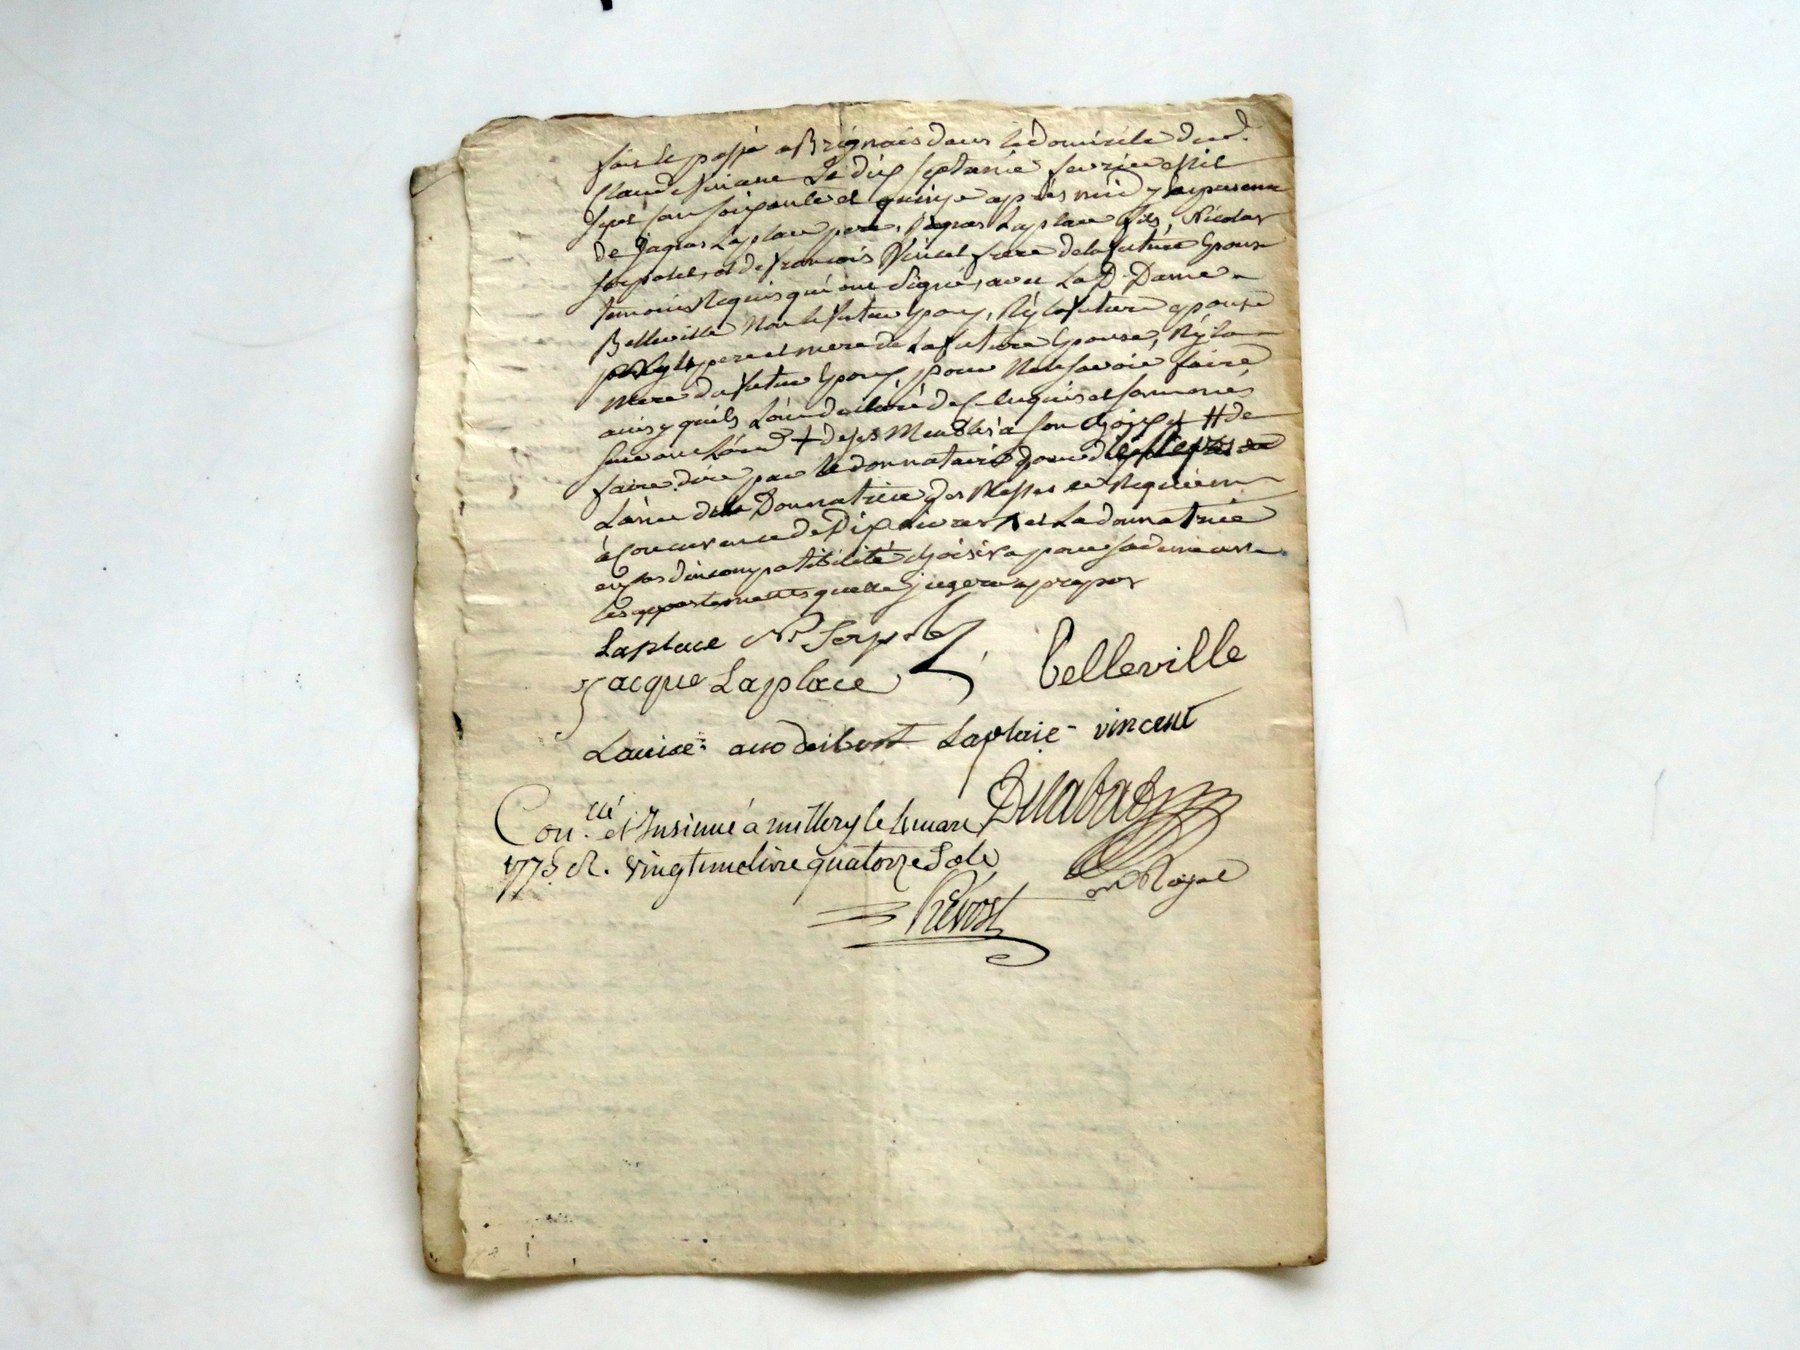 fait et passé a Brignais dans le domicile dud.
Claude le dix septieme fevrier mil
sept cen soixante et quinze apres midy en presence
de Jaques Laplace pere, Jaques Laplace fils, Nicolas
et de françois Vincent frere de la future Epouse
temoins Requis qui ont signé, avec La D. Dame
Belleville Non le futur Epoux, Ny la future epouse
pere et mere de La future Epouse, Ny la
mere du futur Epoux, pour Ne le savoir faire
ainsy quils L'ont declaré de ce Enquis et sommés
+ de ses Meubles a son choix # de
faire dire par le donnataire
L'ame de la Donnatrice des Messes de Requiem
à Concurrence de Dix Livres et La donnatrice
en cas d'incompatibilité choisira pour sa demeure
les appartements quelle jugera a propos
Laplace Ns Serpolet
Jacque Laplace Belleville
Louise Laplace vincent
Con.llé et Insinué à millery le 4 mars
1775 R. vingt une livre quatorze Sols
Nre Royal
Prévost